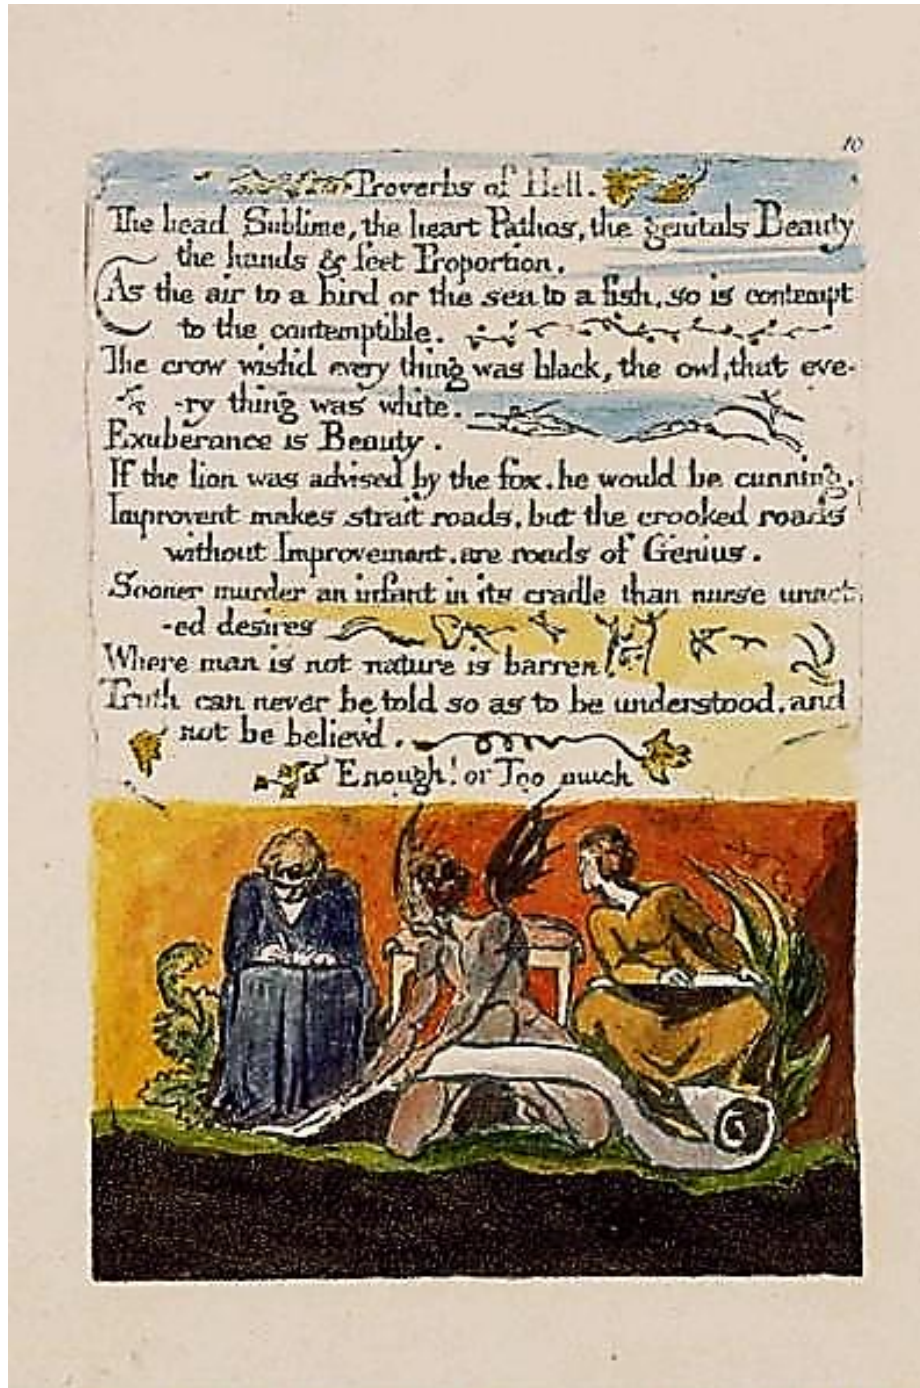 10
Proverbs of Hell.
The head Sublime, the heart Pathos, the genitals Beauty
the hands & feet Proportion.
As the air to a bird or the sea to a fish, so is contempt
to the contemptible.
The crow wish'd every thing was black, the owl, that eve-
-ry thing was white.
Exuberance is Beauty.
If the lion was advised by the fox. he would be cunning.
Improvent makes strait roads, but the crooked roads
without Improvement, are roads of Genius.
Sooner murder an infant in its cradle than nurse unact-
-ed desires
Where man is not nature is barren.
Truth can never be told so as to be understood, and
not be believ'd.
Enough! or Too much